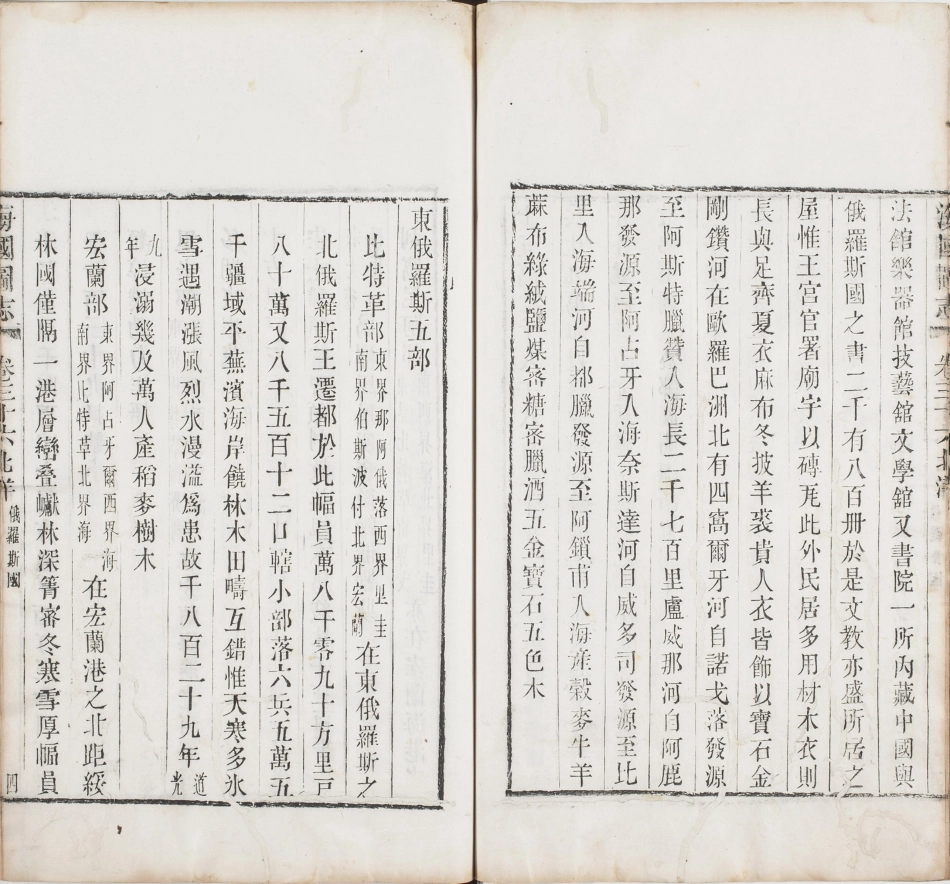 海國圖志 卷三十六 北洋
法館樂器館技藝舘文學舘又書院一所內藏中國與
俄羅斯國之書二千有八百冊於是文教亦盛所居之
屋惟王宮官署廟宇以磚瓦此外民居多用材木衣則
長與足齊夏衣麻布冬披羊裘貴人衣皆飾以寶石金
剛鑽河在歐羅巴洲北有四窩爾牙河自諾戈落發源
至阿斯特臘贊入海長二千七百里盧威那河自阿鹿
那發源至阿占牙入海奈斯達河自威多司發源至比
里入海端河自都臘發源至阿鎖甫入海產穀麥牛羊
蔴布綠絨鹽煤蜜糖蜜臘酒五金寶石五色木
東俄羅斯五部
比特革部東界那阿俄落西界里圭南界伯斯波付北界宏蘭在東俄羅斯之
北俄羅斯王遷都於此幅員萬八千零九十方里戸
八十萬又八千五百十二口轄小部落六兵五萬五
千疆域平蕪濱海岸饒林木田疇互錯惟天寒多氷
雪遇潮漲風烈水漫溢爲患故千八百二十九年道光
九年浸溺幾及萬人產稻麥樹木
宏蘭部東界阿占牙爾西界海南界比特革北界海在宏蘭港之北距綏
林國僅隔一港層巒疊巘林深箐密冬寒雪厚幅員
海國圖志 卷三十六 北洋 俄羅斯國 四